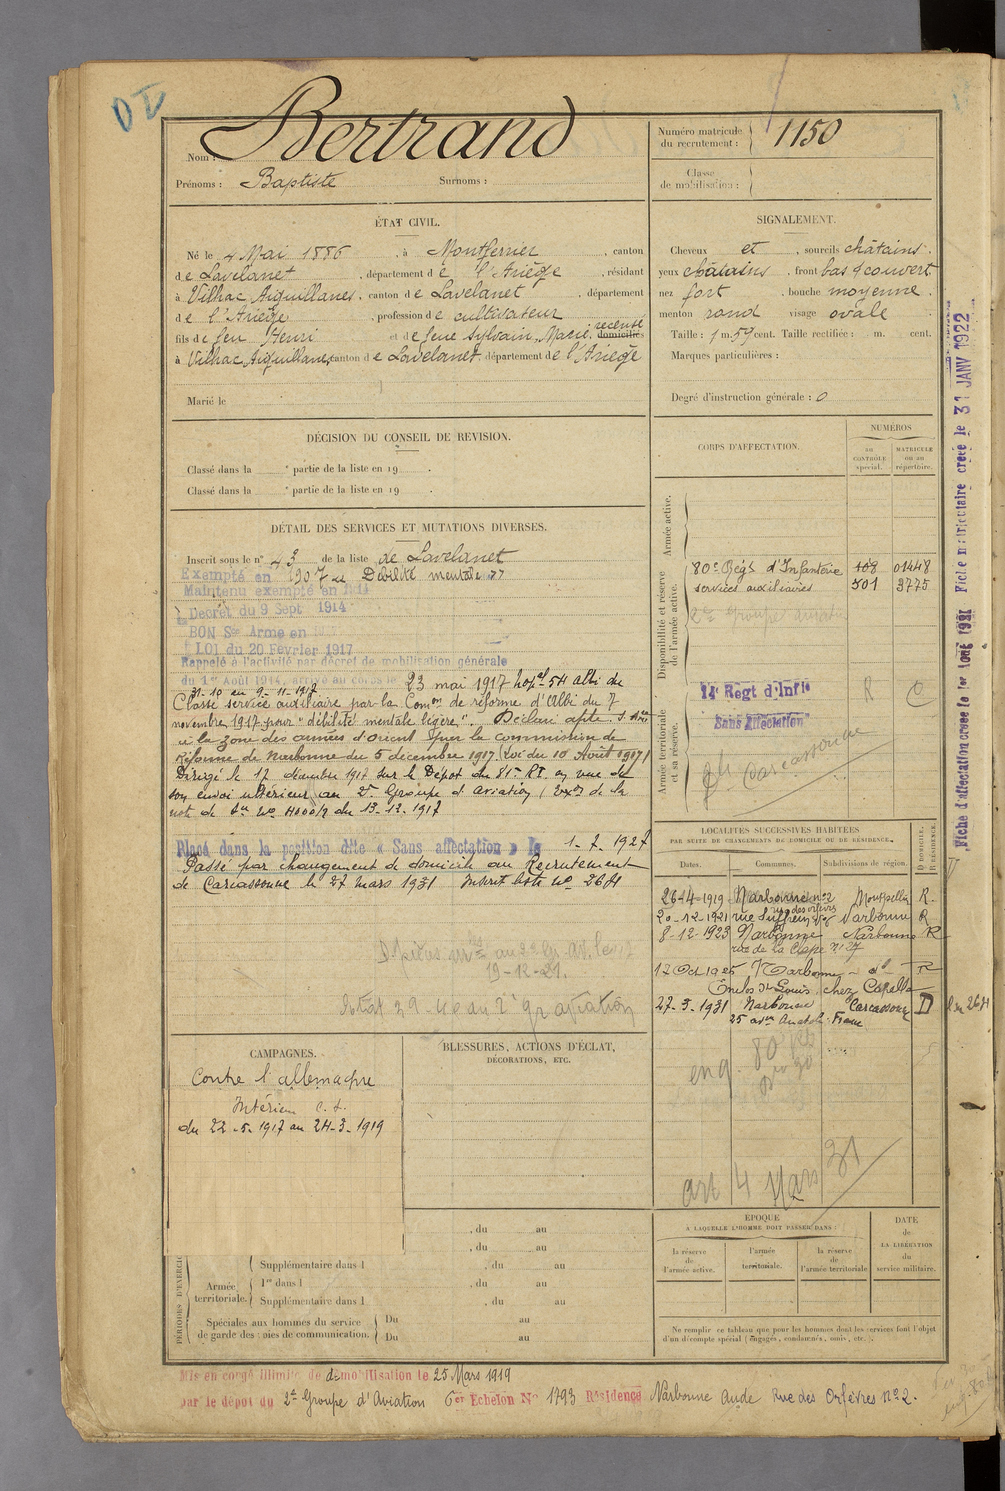 Nom : Bertrand
Prénoms : Baptiste Surnoms :
Numéro matricule du recrutement : 1150
Classe de mobilisation :
ÉTAT CIVIL.
Né le 4 Mai 1886, à Montferrier, canton
de Lavelanet, département de l'Ariège, résidant
à Vilhac, Aiguillanes, canton de Lavelanet, département
de l'Ariège, profession de cultivateur
fils de feu Henri et de feue Sylvain, Marie, recensé domiciliés
à Vilhac Aiguillanes, canton de Lavelanet département de l'Ariège
Marié le
SIGNALEMENT.
Cheveux et, sourcils châtains.
yeux châtains, front bas & couvert
nez fort, bouche moyenne.
menton rond visage ovale
Taille : 1 m. 59 cent. Taille rectifiée : m. cent.
Marques particulières :
Degré d'instruction générale : 0
DÉCISION DU CONSEIL DE REVISION.
Classé dans la e partie de la liste en 19 .
Classé dans la e partie de la liste en 19 .
DÉTAIL DES SERVICES ET MUTATIONS DIVERSES.
Inscrit sous le n° 43 de la liste de Lavelanet
Exempté en 1907 Débilité mentale
Maintenu exempté en 1914
Décret du 9 Sept 1914
BON Sce Armé en
LOI du 20 Février 1917
Rappelé à l'activité par décret de mobilisation générale
du 1er Août 1914, arrivé au corps le 23 mai 1917 hopal 54 Albi du
31-10 au 9-11-1917
Classé service auxiliaire par la Comon de réforme d'Albi du 7
novembre 1917 pour "débilité mentale légère". Déclaré apte
à la zone des armées d'orient par la commission de
réforme de Narbonne du 5 décembre 1917 (Loi du 10 Août 1917)
Dirigé le 17 décembre 1917 sur le Dépôt du 81e RI en vue de
son envoi ultérieur au 2e Groupe d'Aviation
du 13-12-1917
Placé dans la position dite « Sans affectation » le 1-7-1927
Passé par changement de domicile au Recrutement
de Carcassonne le 27 mars 1931
19-12-21.
CORPS D'AFFECTATION.
NUMÉROS
au contrôle spécial.
matricule ou au répertoire.
Armée active.
Disponibilité et réserve de l'armée active.
80e Régt d'Infanterie 108 01448
services auxiliaires 501 3775
2e Groupe aviation
Armée territoriale et sa réserve.
14e Regt d'Infie
"Sans Affectation"
R C
Carcassonne
LOCALITÉS SUCCESSIVES HABITÉES
PAR SUITE DE CHANGEMENTS DE DOMICILE OU DE RÉSIDENCE.
Dates. Communes. Subdivisions de région. D DOMICILE. R RÉSIDENCE.
26-4-1919 Narbonne n°2 Montpellier R.
rue des orfèvres
20-12-1921 rue Suffren Narbonne R
8-12-1923 Narbonne Narbonne R
rue de la Clape n° 27
17 Oct 1925 Narbonne - d° - R
Enclos St Louis, chez Capella
27-3-1931 Narbonne Carcassonne D
25 avue Anatole France
art 4 Mars 31
CAMPAGNES.
Contre l'allemagne
Intérieur C.S.
du 22-5-1917 au 24-3-1919
BLESSURES, ACTIONS D'ÉCLAT,
DÉCORATIONS, ETC.
, du au
, du au
PÉRIODES D'EXERCICE
Armée territoriale.
Supplémentaire dans l , du au
1re dans l , du au
Supplémentaire dans l , du au
Spéciales aux hommes du service de garde des voies de communication.
Du au
Du au
ÉPOQUE
À LAQUELLE L'HOMME DOIT PASSER DANS :
la réserve de l'armée active.
l'armée territoriale.
la réserve de l'armée territoriale.
DATE de LA LIBÉRATION du service militaire.
Ne remplir ce tableau que pour les hommes dont les services font l'objet
d'un décompte spécial (engagés, condamnés, omis, etc.).
Mis en congé illimité de démobilisation le 25 Mars 1919
par le dépôt du 2e Groupe d'Aviation 6er Echelon N° 1793 Résidence Narbonne Aude Rue des Orfèvres n° 2.
Fiche d'affectation créée le 1er Août 1921 Fiche matriculaire créée le 31 JANV 1922